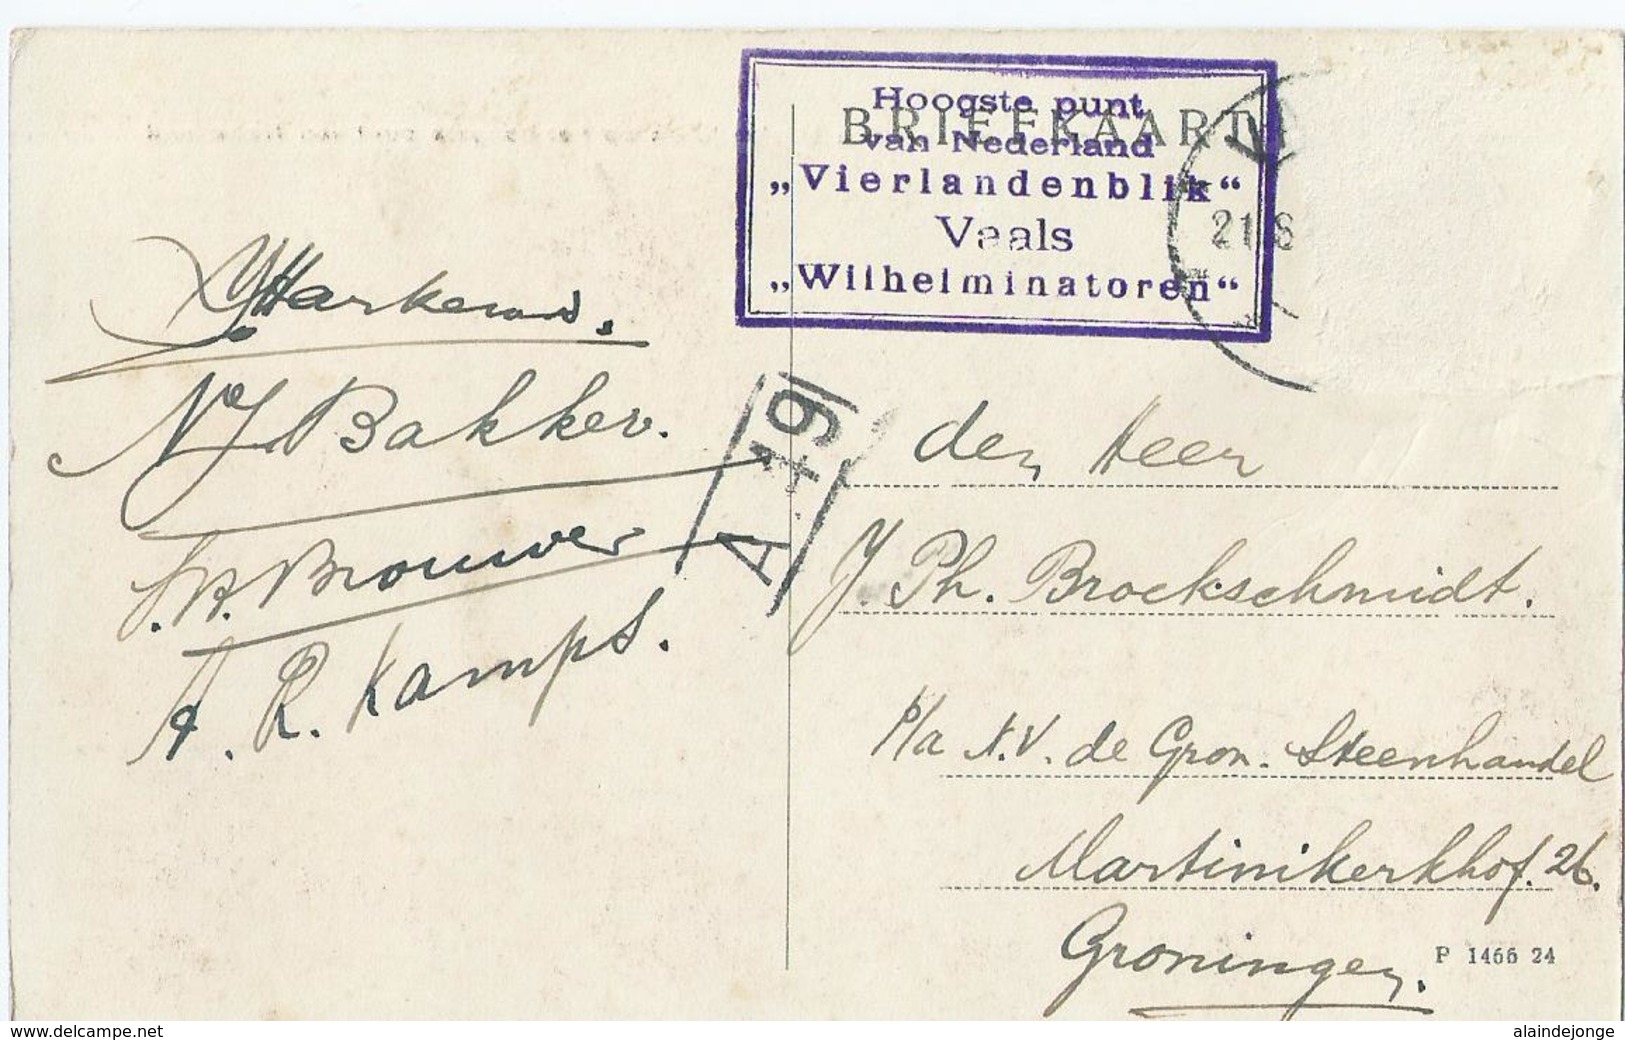 BRIEFKAART
Hoogste punt
van Nederland
„Vierlandenblik“
Vaals
„Wilhelminatoren“
21 8
NJ Bakker.
Brouwer
A. R. Kamps.
A 49
den Heer
J. Ph. Brockschmidt.
p/a N.V. de Gron. Steenhandel
Martinikerkhof. 26.
Groningen.
P 1466 24
www.delcampe.net
alaindejonge